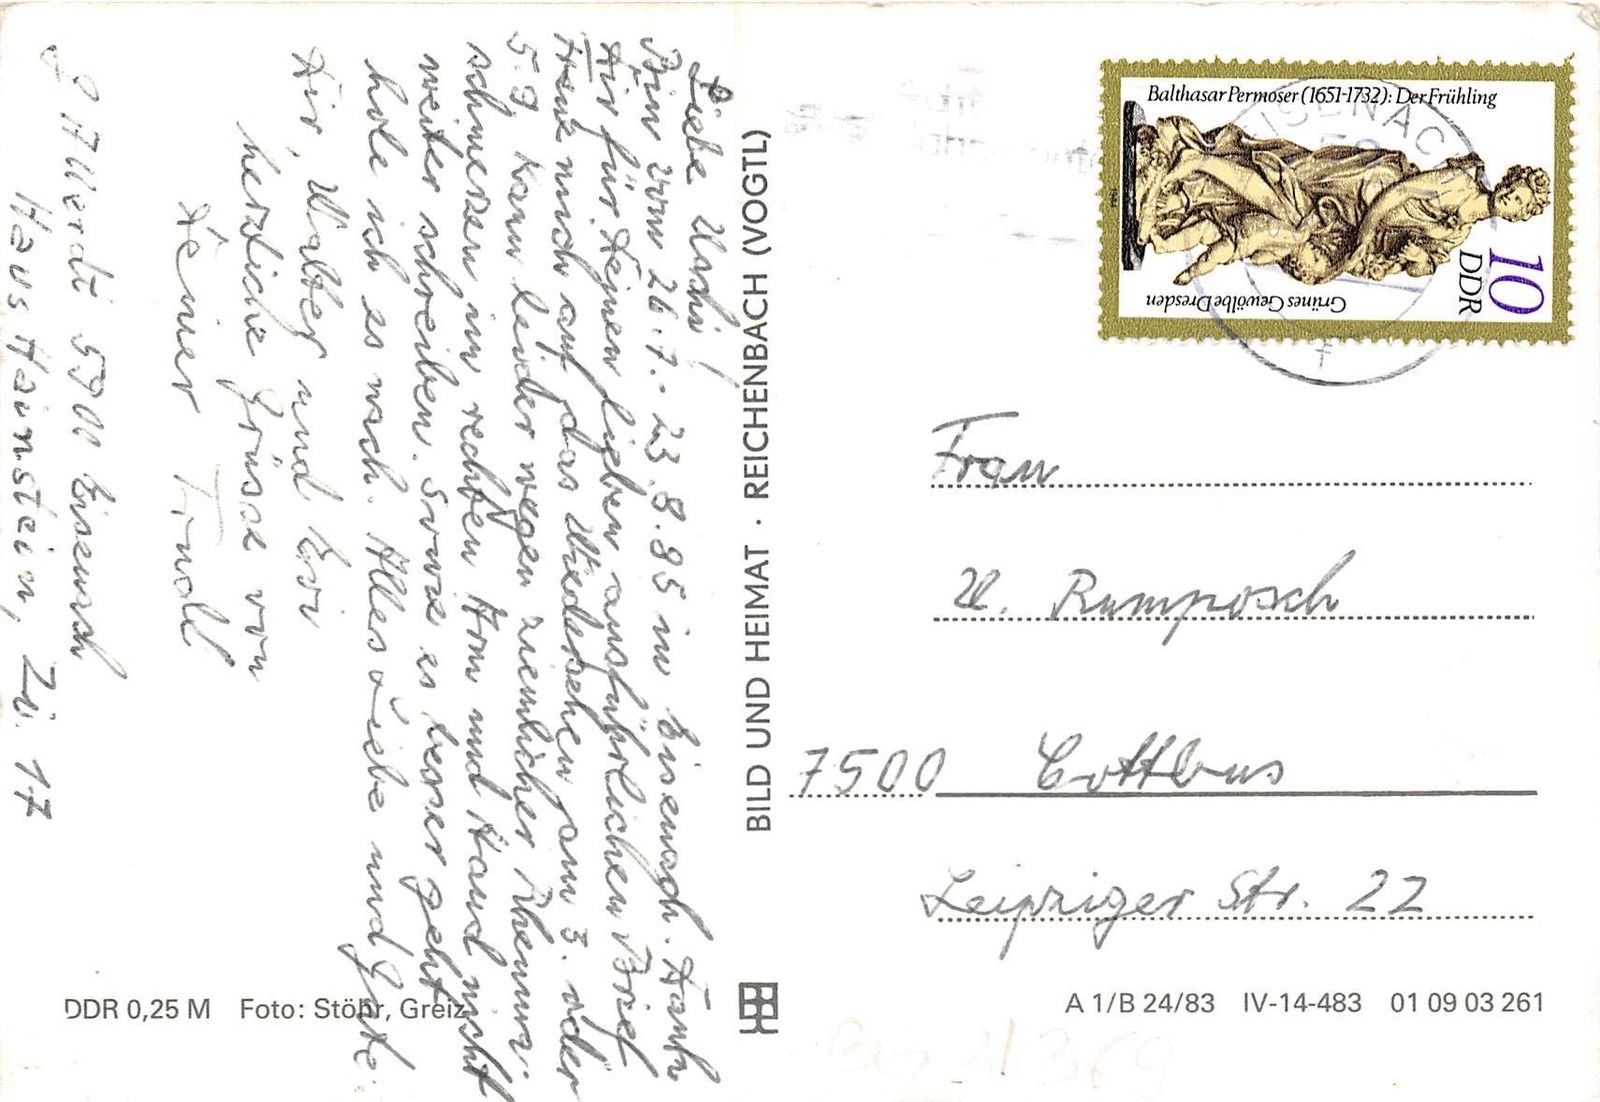 Liebe Uschi!
Bin vom 26.7.-23.8.85 in Eisenach. Dank
Dir für Deinen lieben ausführlichen Brief
Freue mich auf das Wiedersehen am 3. oder
5.9 Kann leider wegen ziemlicher Rheuma-
schmerzen im rechten Arm und Hand nicht
weiter schreiben. Sowie es besser geht
hole ich es nach. Alles Liebe und Gute
Dir, Walter und Evi
herzliche Grüsse von
Deiner Trudl
5900 Eisenach
Haus Hainstein, Zi. 17
BILD UND HEIMAT · REICHENBACH (VOGTL)
Balthasar Permoser (1651-1732): Der Frühling
Grünes Gewölbe Dresden
10
DDR
Frau
U. Rumposch
7500 Cottbus
Leipziger Str. 22
DDR 0,25 M Foto: Stöhr, Greiz
A 1/B 24/83 IV-14-483 01 09 03 261